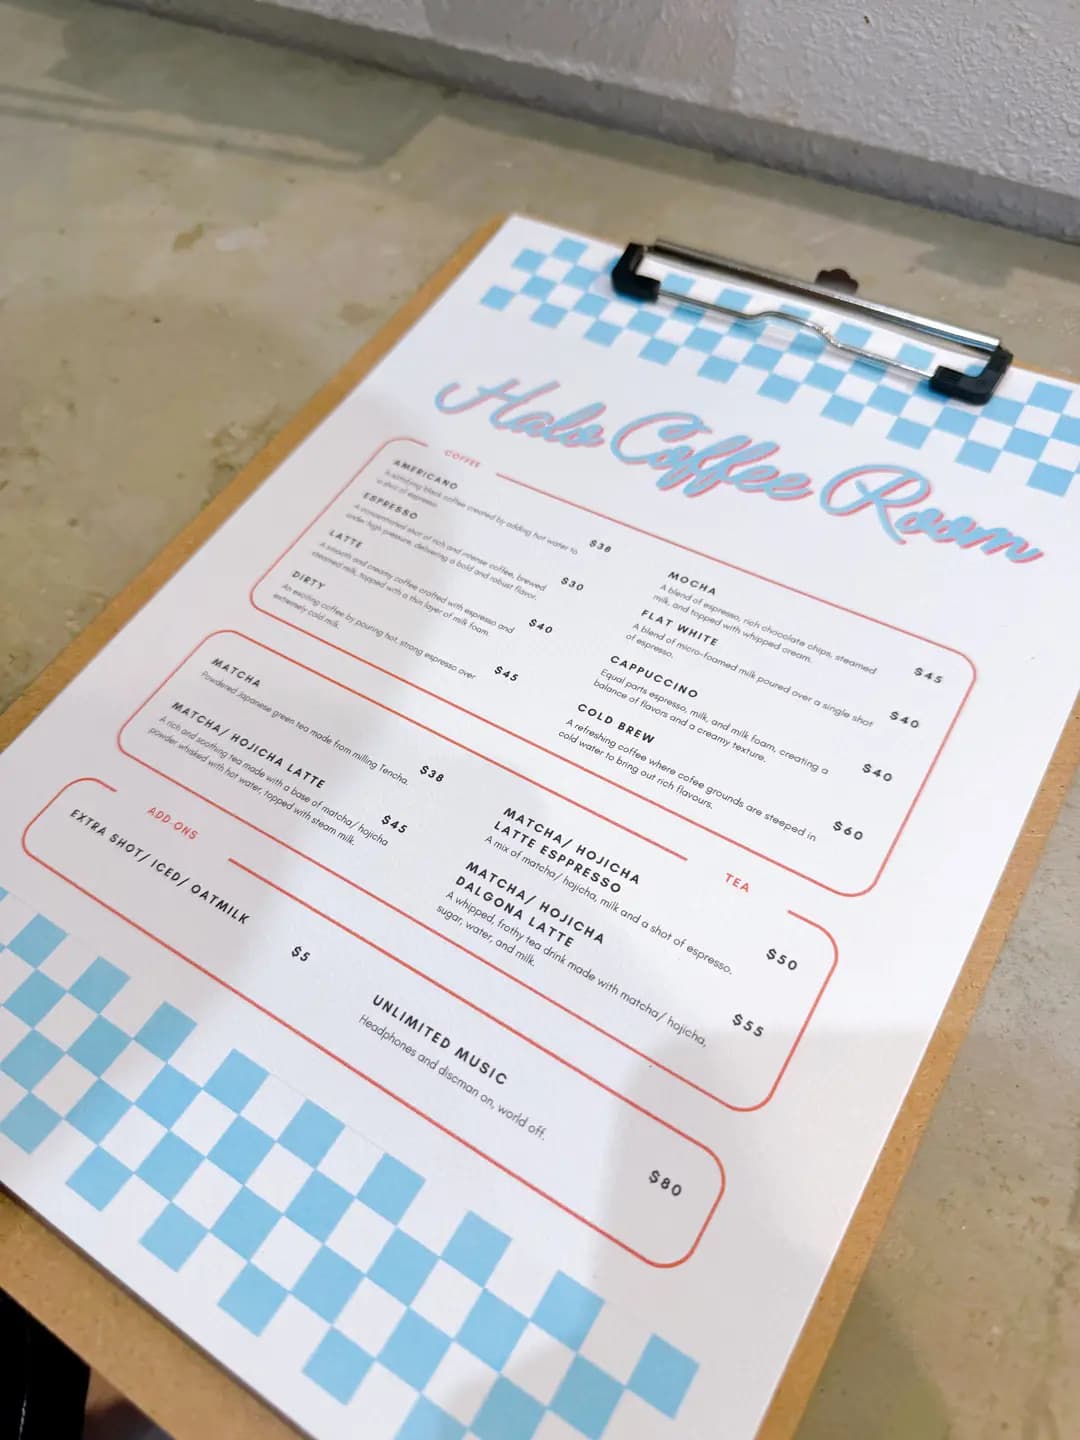 Halo Coffee Room
COFFEE
AMERICANO
A satisfying black coffee created by adding hot water to
a shot of espresso.
$38
ESPRESSO
A concentrated shot of rich and intense coffee, brewed
under high pressure, delivering a bold and robust flavor.
$30
LATTE
A smooth and creamy coffee crafted with espresso and
steamed milk, topped with a thin layer of milk foam.
$40
DIRTY
An exciting coffee by pouring hot, strong espresso over
extremely cold milk.
$45
MOCHA
A blend of espresso, rich chocolate chips, steamed
milk, and topped with whipped cream.
$45
FLAT WHITE
A blend of micro-foamed milk poured over a single shot
of espresso.
$40
CAPPUCCINO
Equal parts espresso, milk, and milk foam, creating a
balance of flavors and a creamy texture.
$40
COLD BREW
A refreshing coffee where cofee grounds are steeped in
cold water to bring out rich flavours.
$60
TEA
MATCHA
Powdered Japanese green tea made from milling Tencha.
$38
MATCHA/ HOJICHA LATTE
A rich and soothing tea made with a base of matcha/ hojicha
powder whisked with hot water, topped with steam milk.
$45
MATCHA/ HOJICHA
LATTE ESPPRESSO
A mix of matcha/ hojicha, milk and a shot of espresso.
$50
MATCHA/ HOJICHA
DALGONA LATTE
A whipped, frothy tea drink made with matcha/ hojicha,
sugar, water, and milk.
$55
ADD ONS
EXTRA SHOT/ ICED/ OATMILK
$5
UNLIMITED MUSIC
Headphones and discman on, world off.
$80